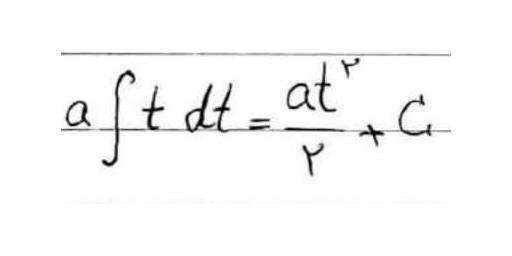 a∫t dt = at^۲/۲ + C